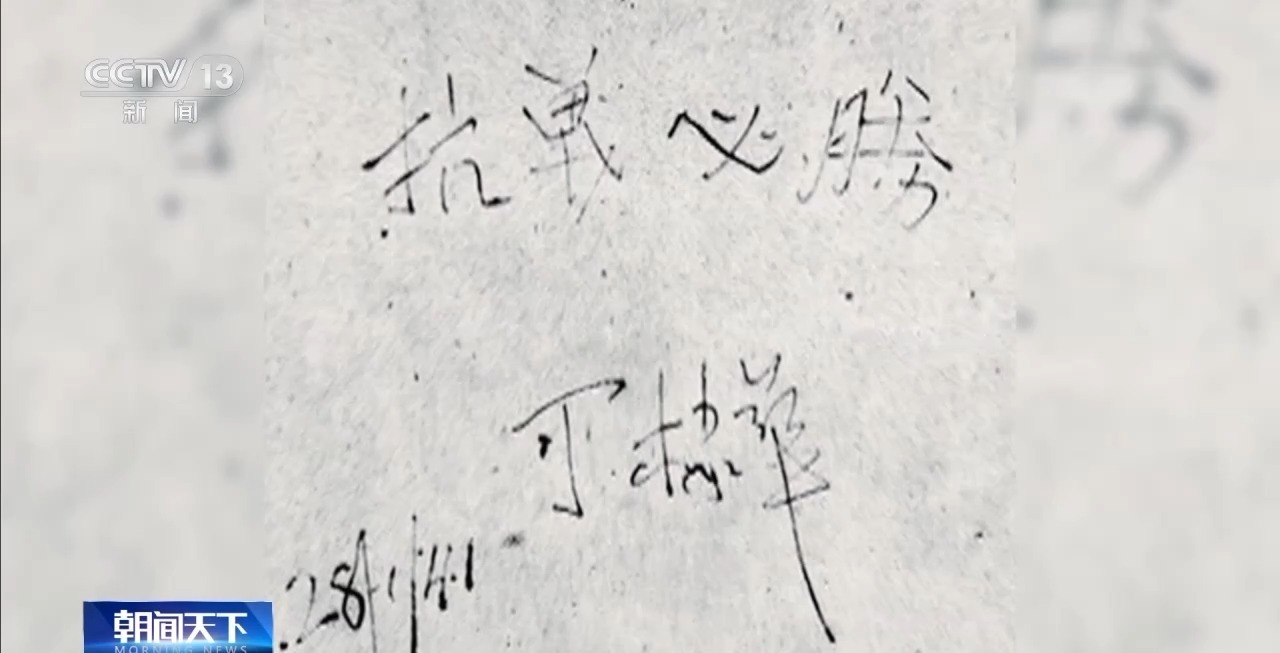 CCTV 13
新闻
抗戦必勝
28/1/41
朝闻天下
MORNING NEWS